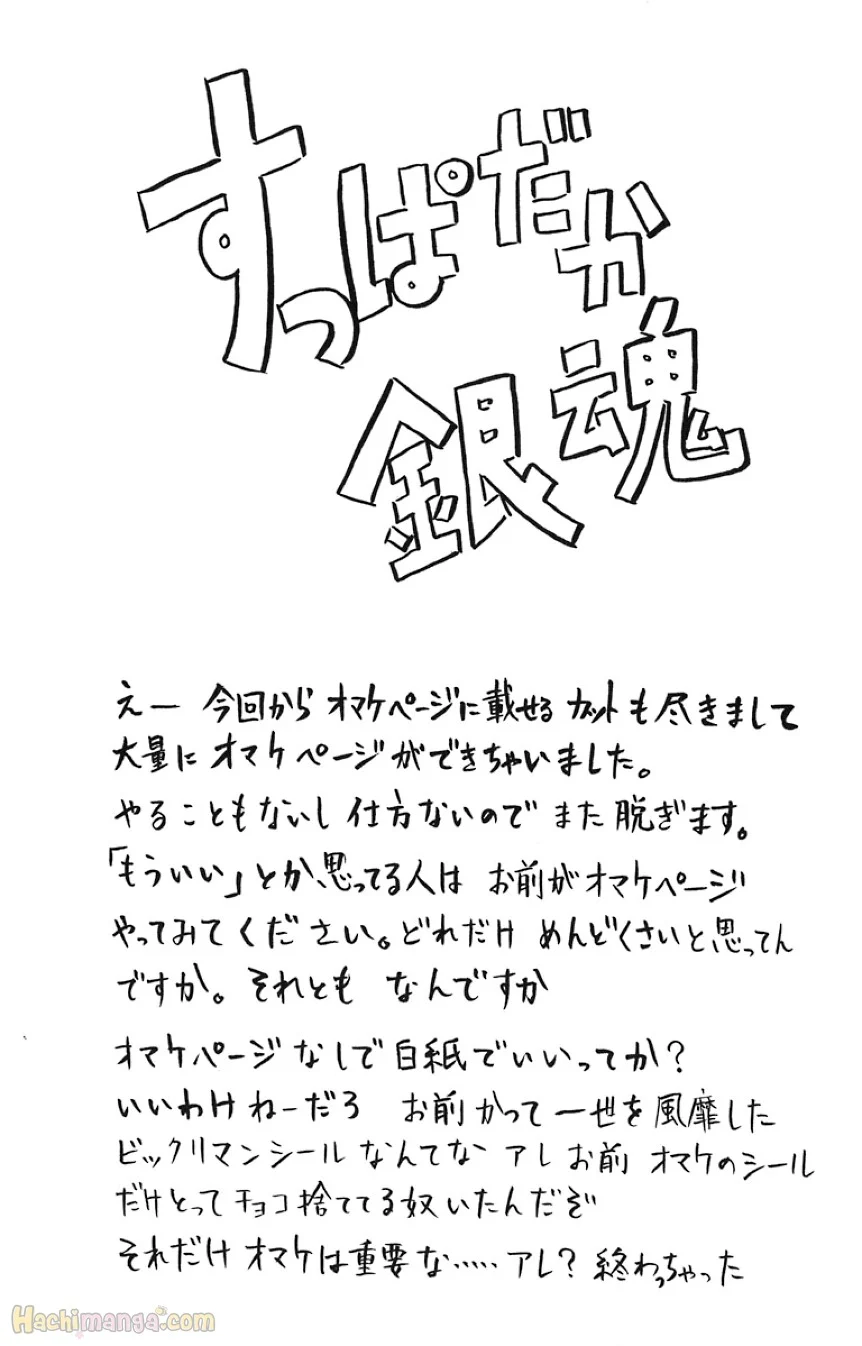 すっぱだか
銀魂
えー 今回から オマケページに載せる カットも尽きまして
大量に オマケページができちゃいました。
やることもないし 仕方ないので また脱ぎます。
「もういい」とか思ってる人は お前がオマケページ
やってみてください。どれだけ めんどくさいと思ってん
ですか。それとも なんですか
オマケページなしで白紙でいいってか?
いいわけねーだろ お前かって一世を風靡した
ビックリマンシールなんてな アレお前 オマケのシール
だけとってチョコ捨ててる奴いたんだぞ
それだけオマケは重要な……アレ?終わっちゃった
Hachimanga.com